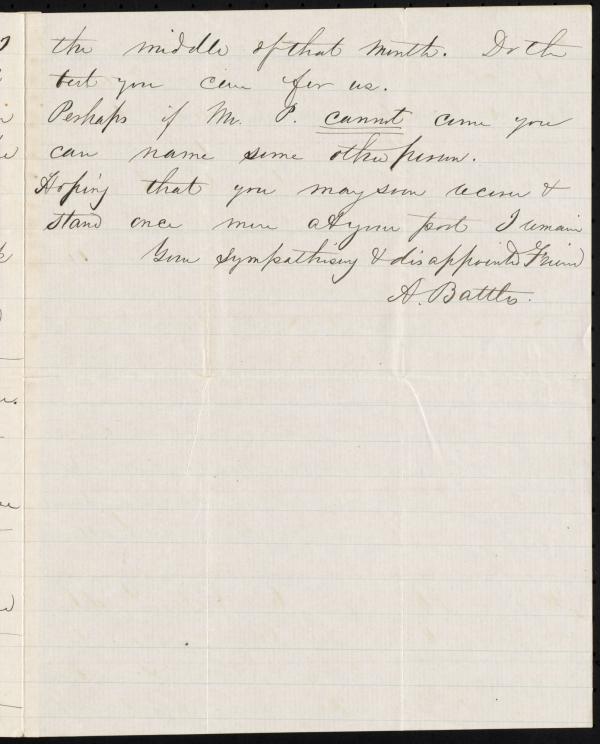 the middle of that month. Do the
best you can for us.
Perhaps if Mr. P. cannot come you
can name some other person.
Hoping that you may soon recover &
stand once more at your post I remain
Your Sympathising & disappointed Friend
A. Battles.